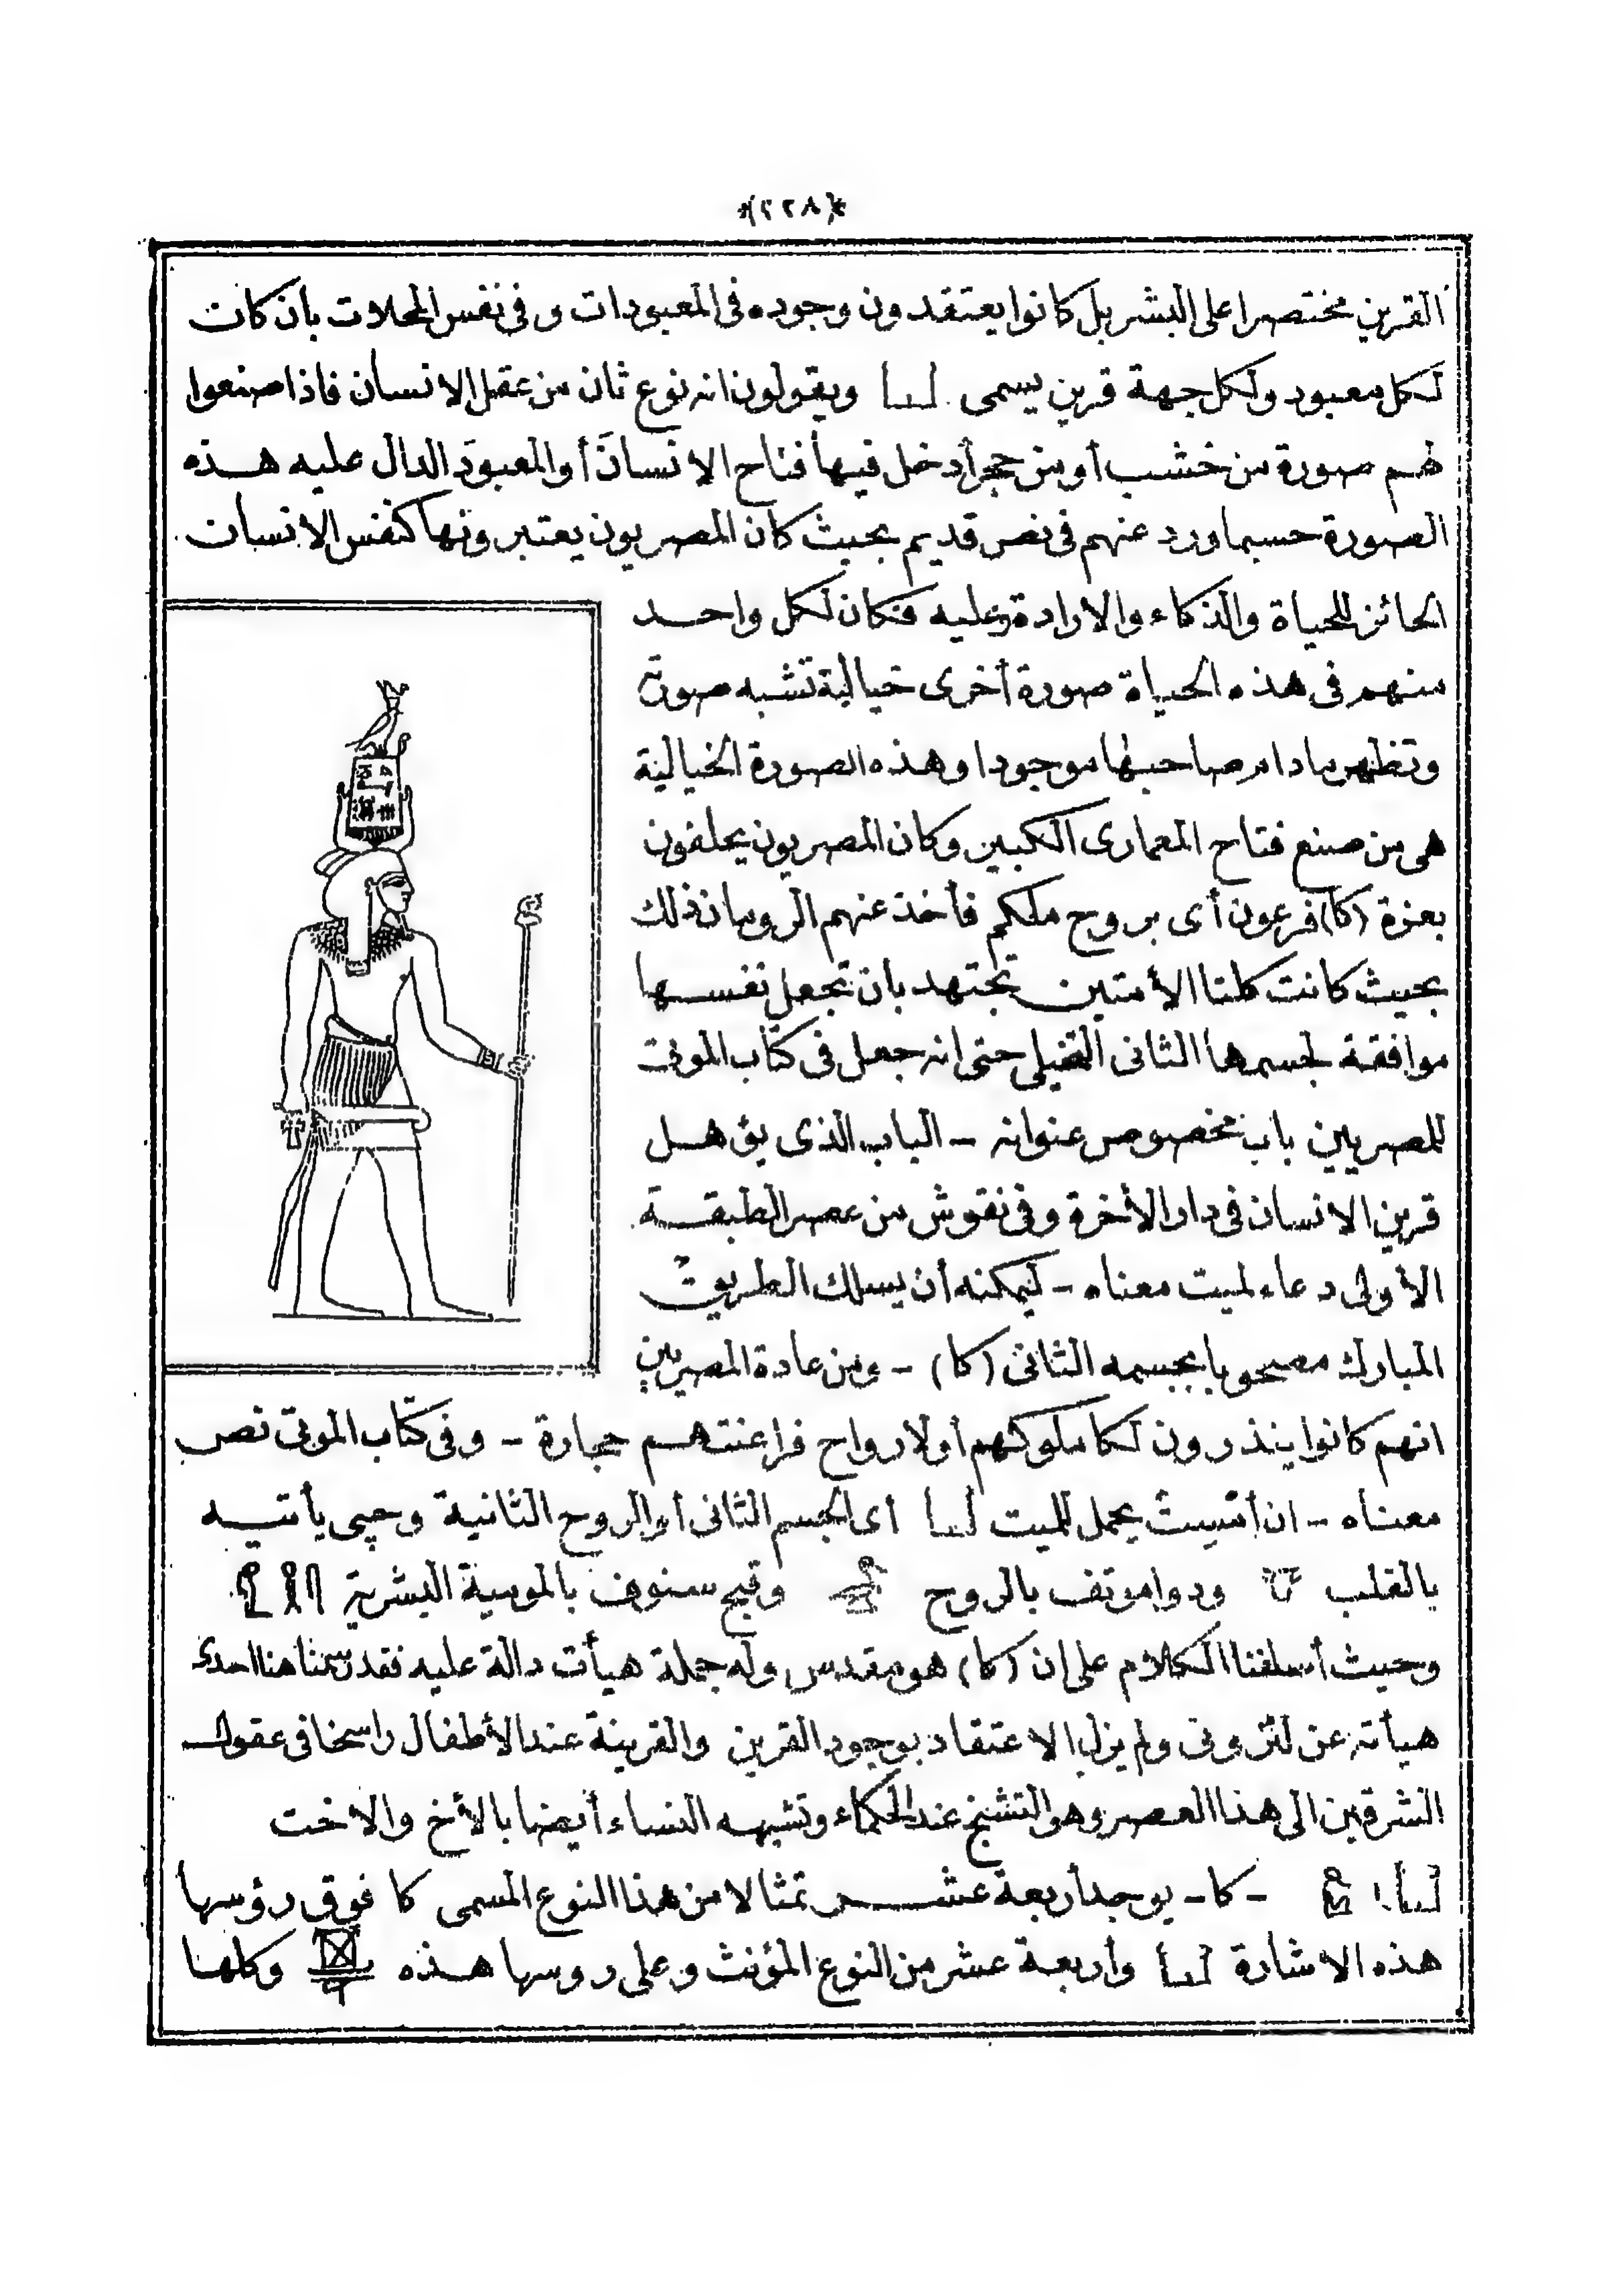 *(٢٢٨)*
القرين مختصرا على البشر بل كانوا يعتقدون وجوده فى المعبودات وفى نفس المحلات بان كان
لكل معبود ولكل جهة قرين يسمى ويقولون انه نوع ثان من عقل الانسان فاذا صنعوا
لهم صورة من خشب أو من حجر أدخل فيها فتاح الانسان أو المعبود الدال عليه هذه
الصورة حسبما ورد عنهم فى نص قديم بحيث كان المصريون يعتبرونها كنفس الانسان
الحائز للحياة والذكاء والارادة وعليه فكان لكل واحد
منهم فى هذه الحياة صورة أخرى خيالية تشبه صورته
وتظهر مادام صاحبها موجودا وهذه الصورة الخيالية
هى من صنع فتاح المعمارى الكبير وكان المصريون يحلفون
بعزة (كا) فرعون أى بروح ملكهم فأخذ عنهم الرومان ذلك
بحيث كانت كلتا الأمتين تجتهد بان تجعل نفسها
موافقة لجسمها الثانى التخيلى حتى انه جعل فى كتاب الموتى
للمصريين باب مخصوص عنوانه - الباب الذى يؤهل
قرين الانسان فى دار الأخرة وفى نقوش من عصر الطبقة
الأولى دعاء لميت معناه - ليمكنه أن يسلك الطريق
المبارك مصحوبا بجسمه الثانى (كا) - ومن عادة المصريين
انهم كانوا ينذرون لكا ملوكهم أولارواح فراعنتهم حجارة - وفى كتاب الموتى نص
معناه - ان أمسيث يحمل للميت أى الجسم الثانى أو الروح الثانية وحپى يأتيه
بالقلب ودواموتف بالروح وقبح سنوف بالموسية البشرية
وحيث أسلفنا الكلام على ان (كا) هو مقدس وله جملة هيأت دالة عليه فقد رسمنا هنا احدى
هيأته عن لنزونى ولم يزل الاعتقاد بوجود القرين والقرينة عند الأطفال راسخا فى عقول
الشرقيين الى هذا العصر وهو التشنج عند الحكماء وتشبهه النساء أيضا بالأخ والاخت
- كا - يوجد أربعة عشر تمثالا من هذا النوع المسمى كا فوق رؤسها
هذه الاشارة وأربعة عشر من النوع المؤنث وعلى روسها هذه وكلها